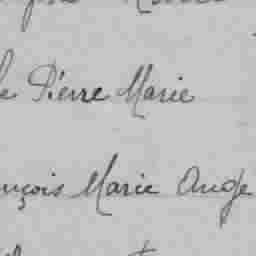 Pierre Marie
nçois Marie Ange